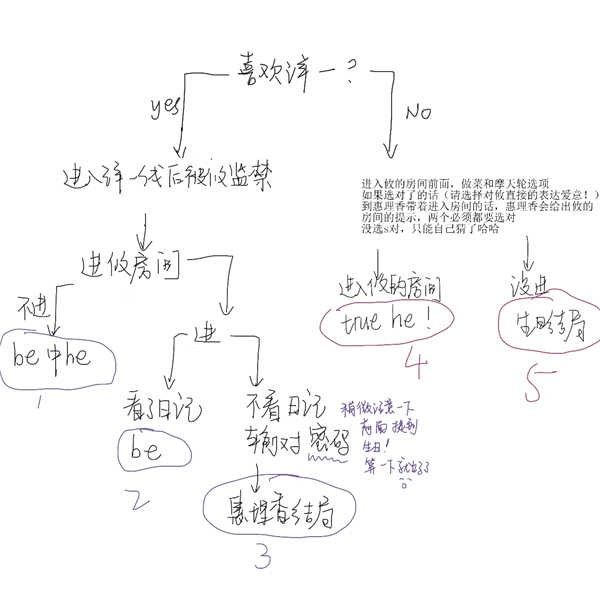 喜欢泽一？
yes
No
进入泽一线后被攸监禁
进入攸的房间前面，做菜和摩天轮选项
如果选对了的话（请选择对攸直接的表达爱意！）
到惠理香带着进入房间的话，惠理香会给出攸的
房间的提示，两个必须都要选对
没选s对，只能自己猜了哈哈
进攸房间
不进
be中he
1
进
进入攸的房间
true he！
4
没进
生日结局
5
看了日记
be
2
不看日记
输对密码
稍微注意一下
前面提到
生日！
算一下就出了
惠理香结局
3